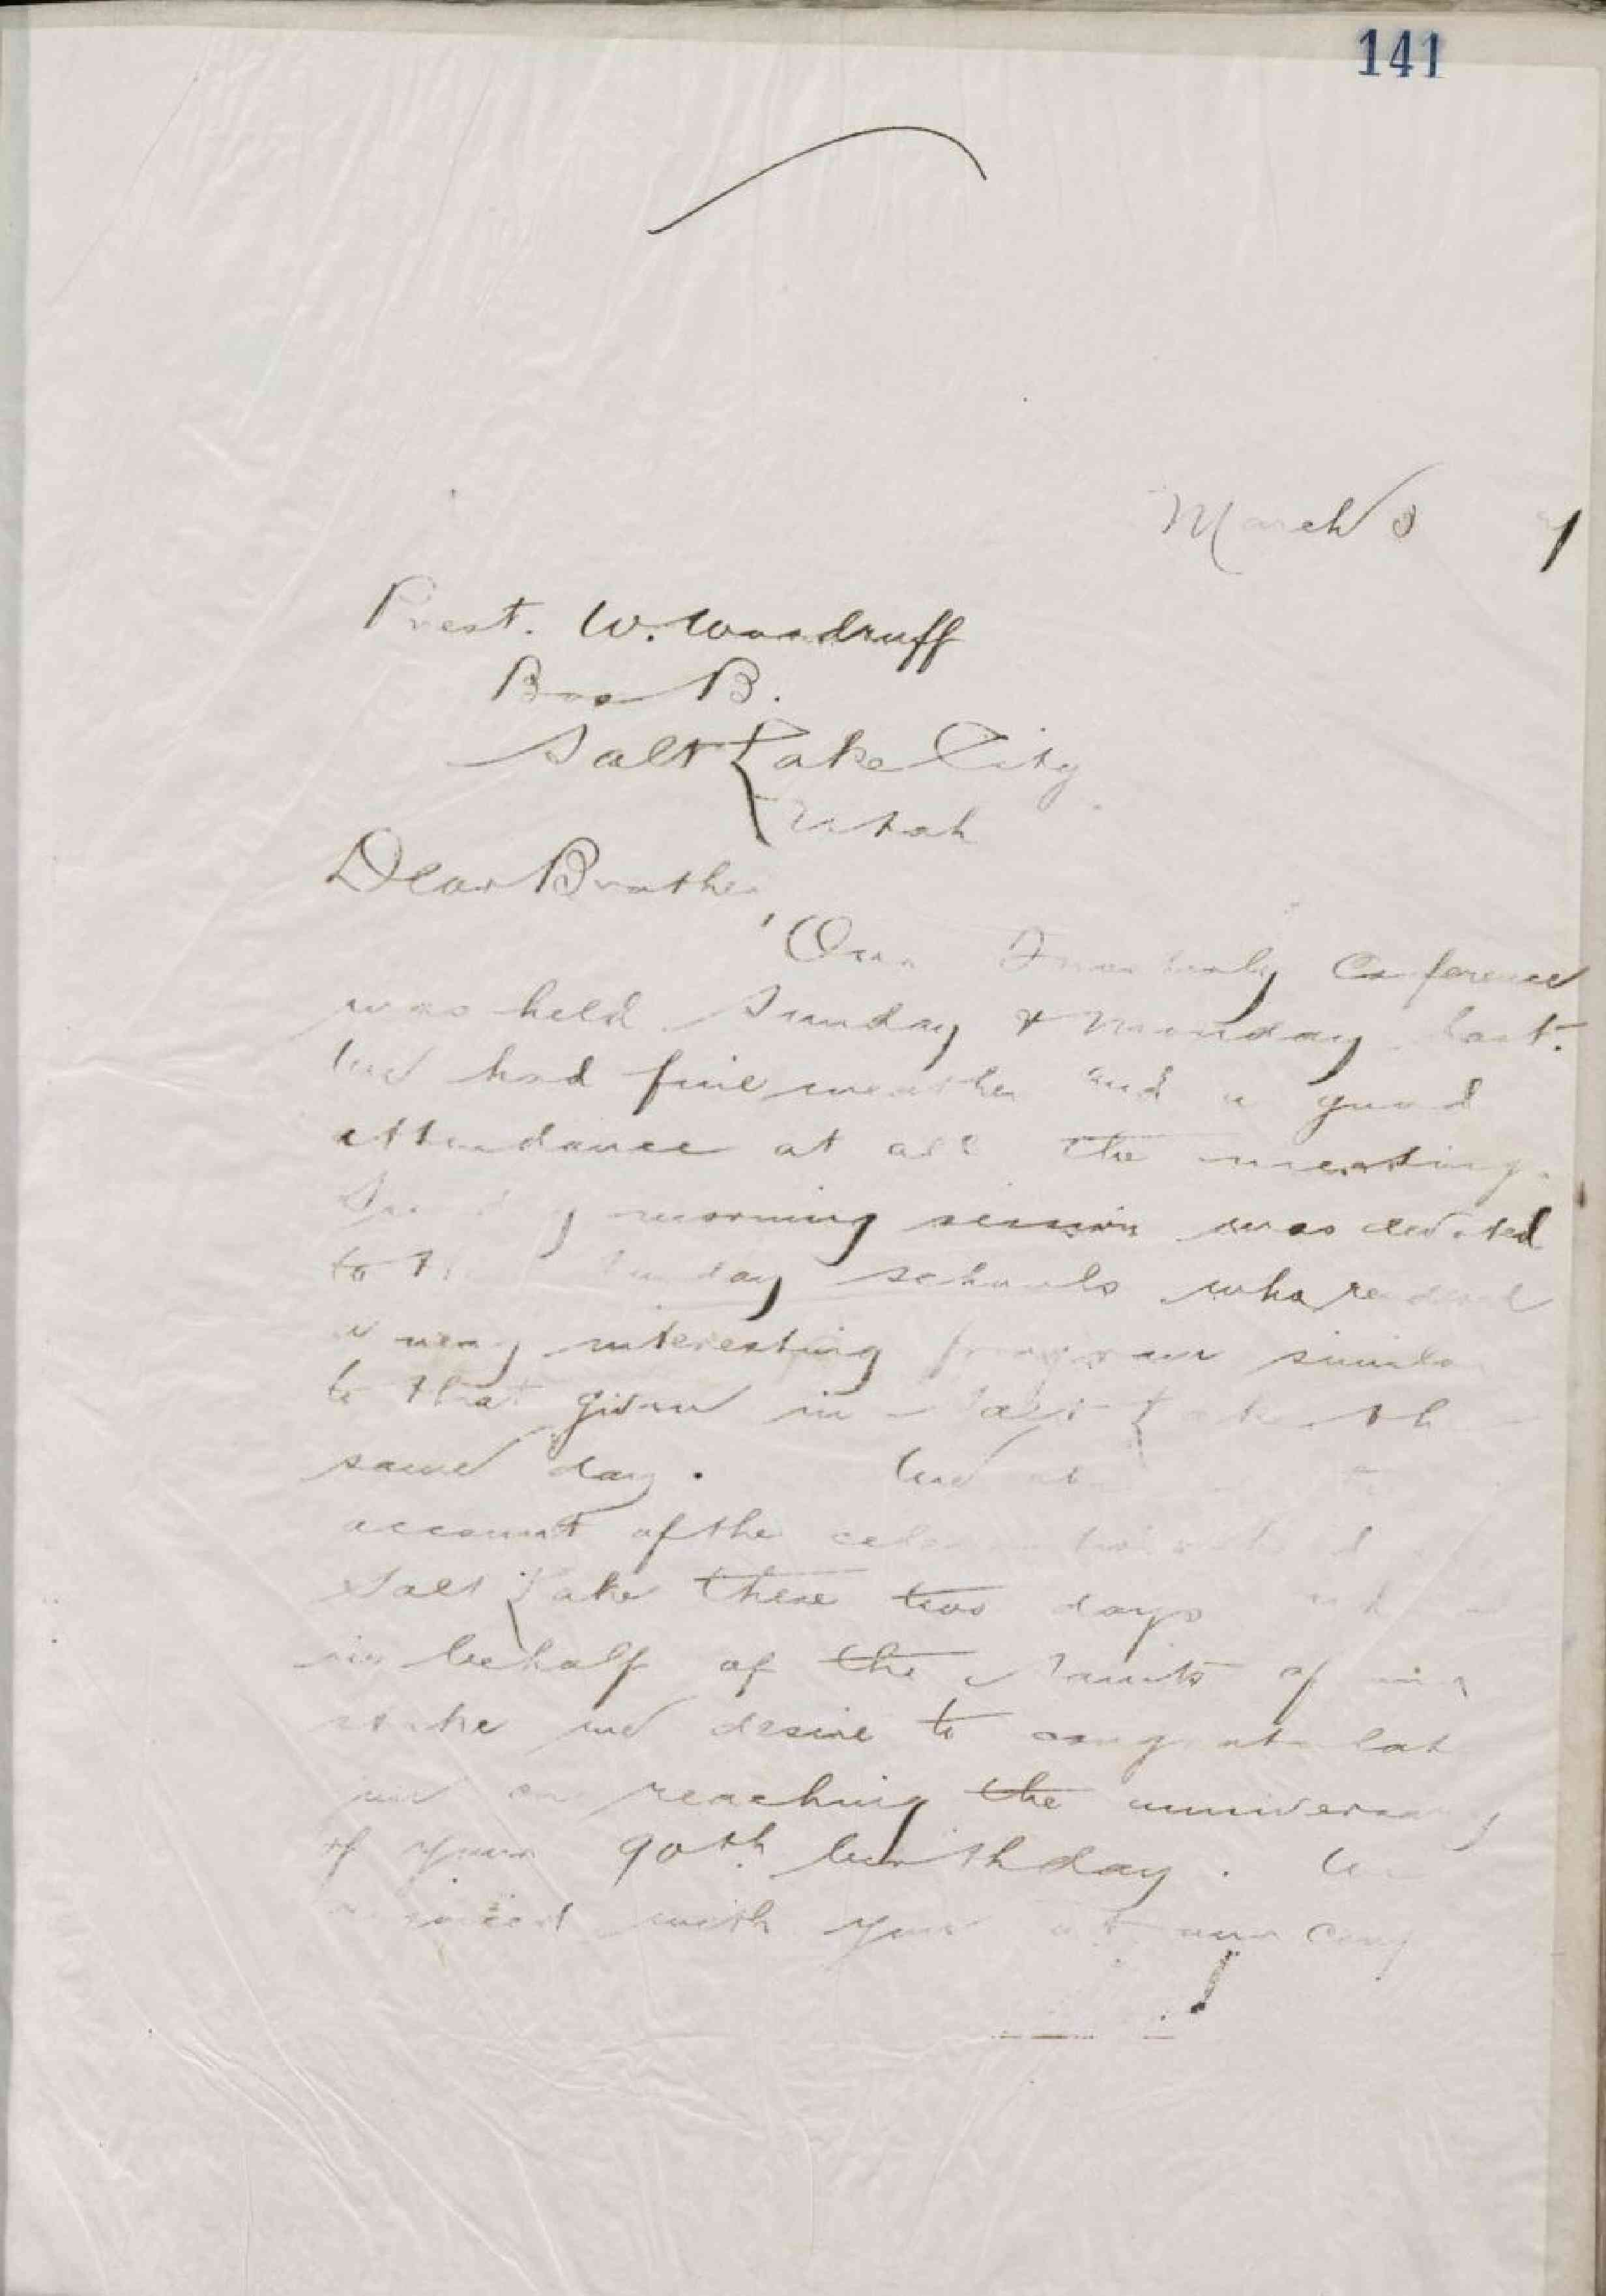 141
March 3 7
Prest. W. Woodruff
Box B.
Salt Lake City
Utah
Dear Brother
Our Quarterly Conference
was held Sunday & Monday last.
We had fine weather and a good
attendance at all the meetings.
Sunday morning session was devoted
to the Sunday schools who rendered
a very interesting program similar
to that given in Salt Lake the
same day. We
account of the celebration
Salt Lake these two days
in behalf of the Saints of
stake we desire to congratulate
you on reaching the anniversary
of your 90th birthday. We
rejoiced with you at our